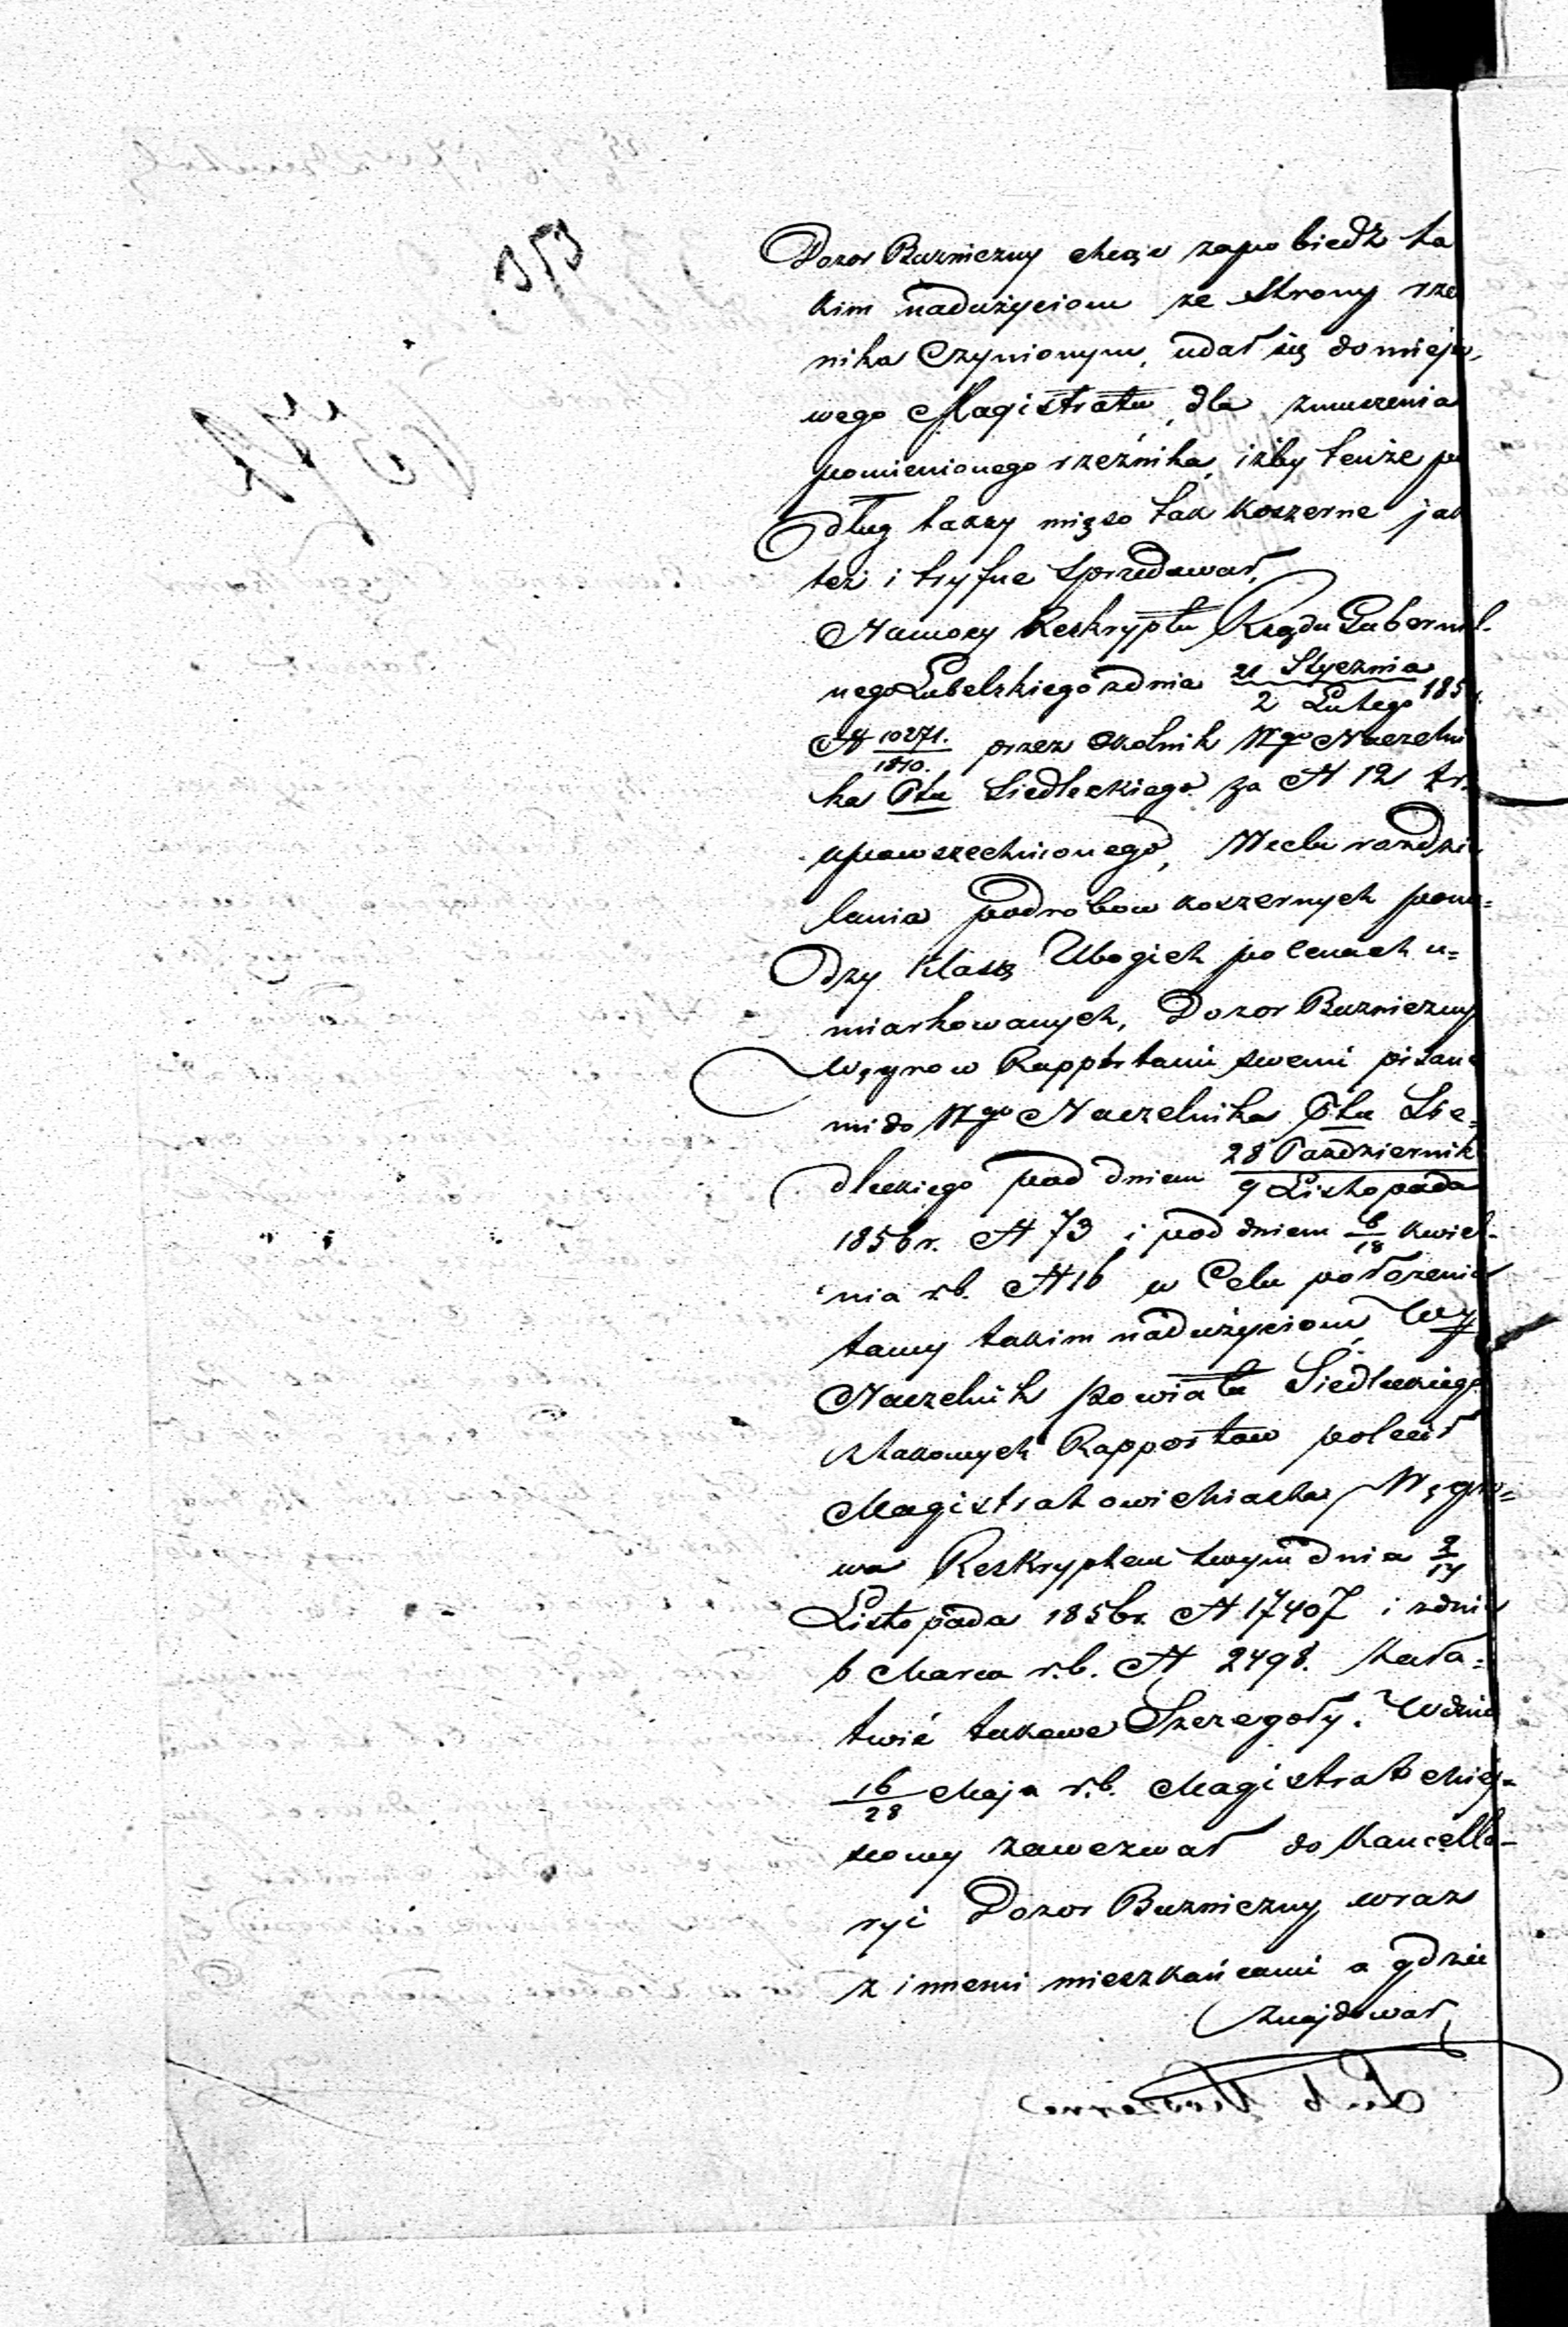 353
Dozor Bużniczny chcąc zapobiedz ta
kim nadużyciom ze Strony rze
nika Czynionym, udał się do miejs,
wego Magistratu, dla zmuszenia
pomienionego rzeźnika, iżby tenże po
dług taxy mięso tak koszerne jak
też i tryfne sprzedawał,
Namocy Reskryptu Rządu Gubernial-
nego Lubelskiego z dnia 21 Stycznia / 2 Lutego 185
N 10271. / 1810. przez Okolnik Wgo Naczelni
ka Ptu Siedleckiego za N 12 tr.
upowszechnionego, Wcelu rozdzie
lania podrobow koszernych pomi=
dzy klassę Ubogich po cenach u=
miarkowanych, Dozor Bużniczny
Węgrow Rapportami swemi pisane
mi do Wgo Naczelnika Ptu Sie=
dleckiego pod dniem 28 Październik / 9 Listopada
1856 r. N 73 i pod dniem 6/18 Kwiet-
nia r.b. N 16 w Celu położenia
tamy takim nadużyciom, Wy
Naczelnik Powiatu Siedleckiego
z takowych Rapportow polecił
Magistratowi Miasta Węgro=
wa Reskryptem swym dnia 2/14
Listopada 1856 r. N 17407 i z dnia
6 Marca r.b. N 2498. Zała=
twić takowe Szczegoły. Wdniu
16/28 Maja r.b. Magistrat Miej=
scowy zawezwał do Kancella-
ryi Dozor Bużniczny wraz
z innemi mieszkańcami a gdzie
znajdował